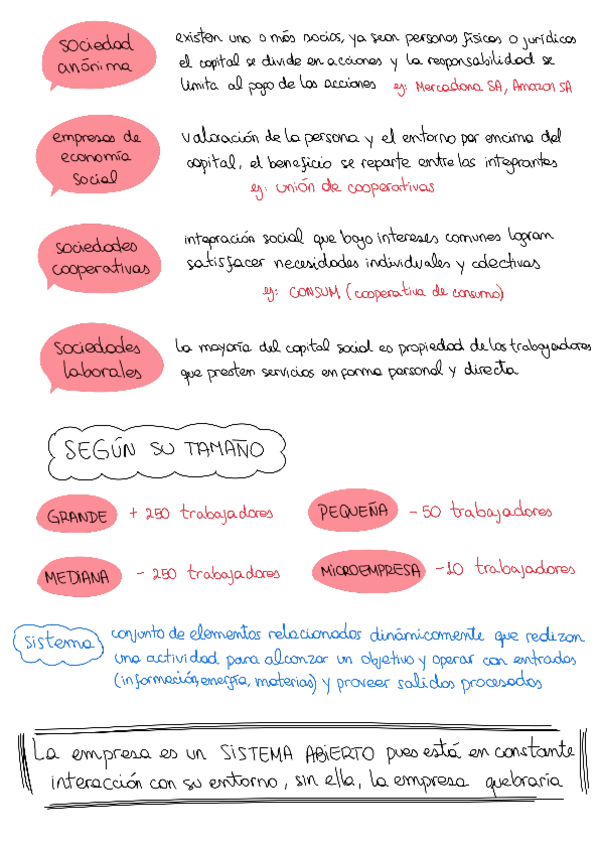 sociedad
anónima
existen uno o más socios, ya sean personas físicas o jurídicas
el capital se divide en acciones y la responsabilidad se
limita al pago de las acciones ej: Mercadona SA, Amazon SA
empresas de
economía
social
Valoración de la persona y el entorno por encima del
capital, el beneficio se reparte entre las integrantes
ej: unión de cooperativas
sociedades
cooperativas
integración social que bajo intereses comunes logran
satisfacer necesidades individuales y colectivas
ej: CONSUM (cooperativa de consumo)
sociedades
laborales
la mayoría del capital social es propiedad de los trabajadores
que presten servicios en forma personal y directa
SEGÚN SU TAMAÑO
GRANDE + 250 trabajadores
PEQUEÑA - 50 trabajadores
MEDIANA - 250 trabajadores
MICROEMPRESA -10 trabajadores
sistema
conjunto de elementos relacionados dinámicamente que realizan
una actividad para alcanzar un objetivo y operar con entradas
(información, energía, materias) y proveer salidas procesadas
La empresa es un SISTEMA ABIERTO pues está en constante
interacción con su entorno, sin ella, la empresa quebraría